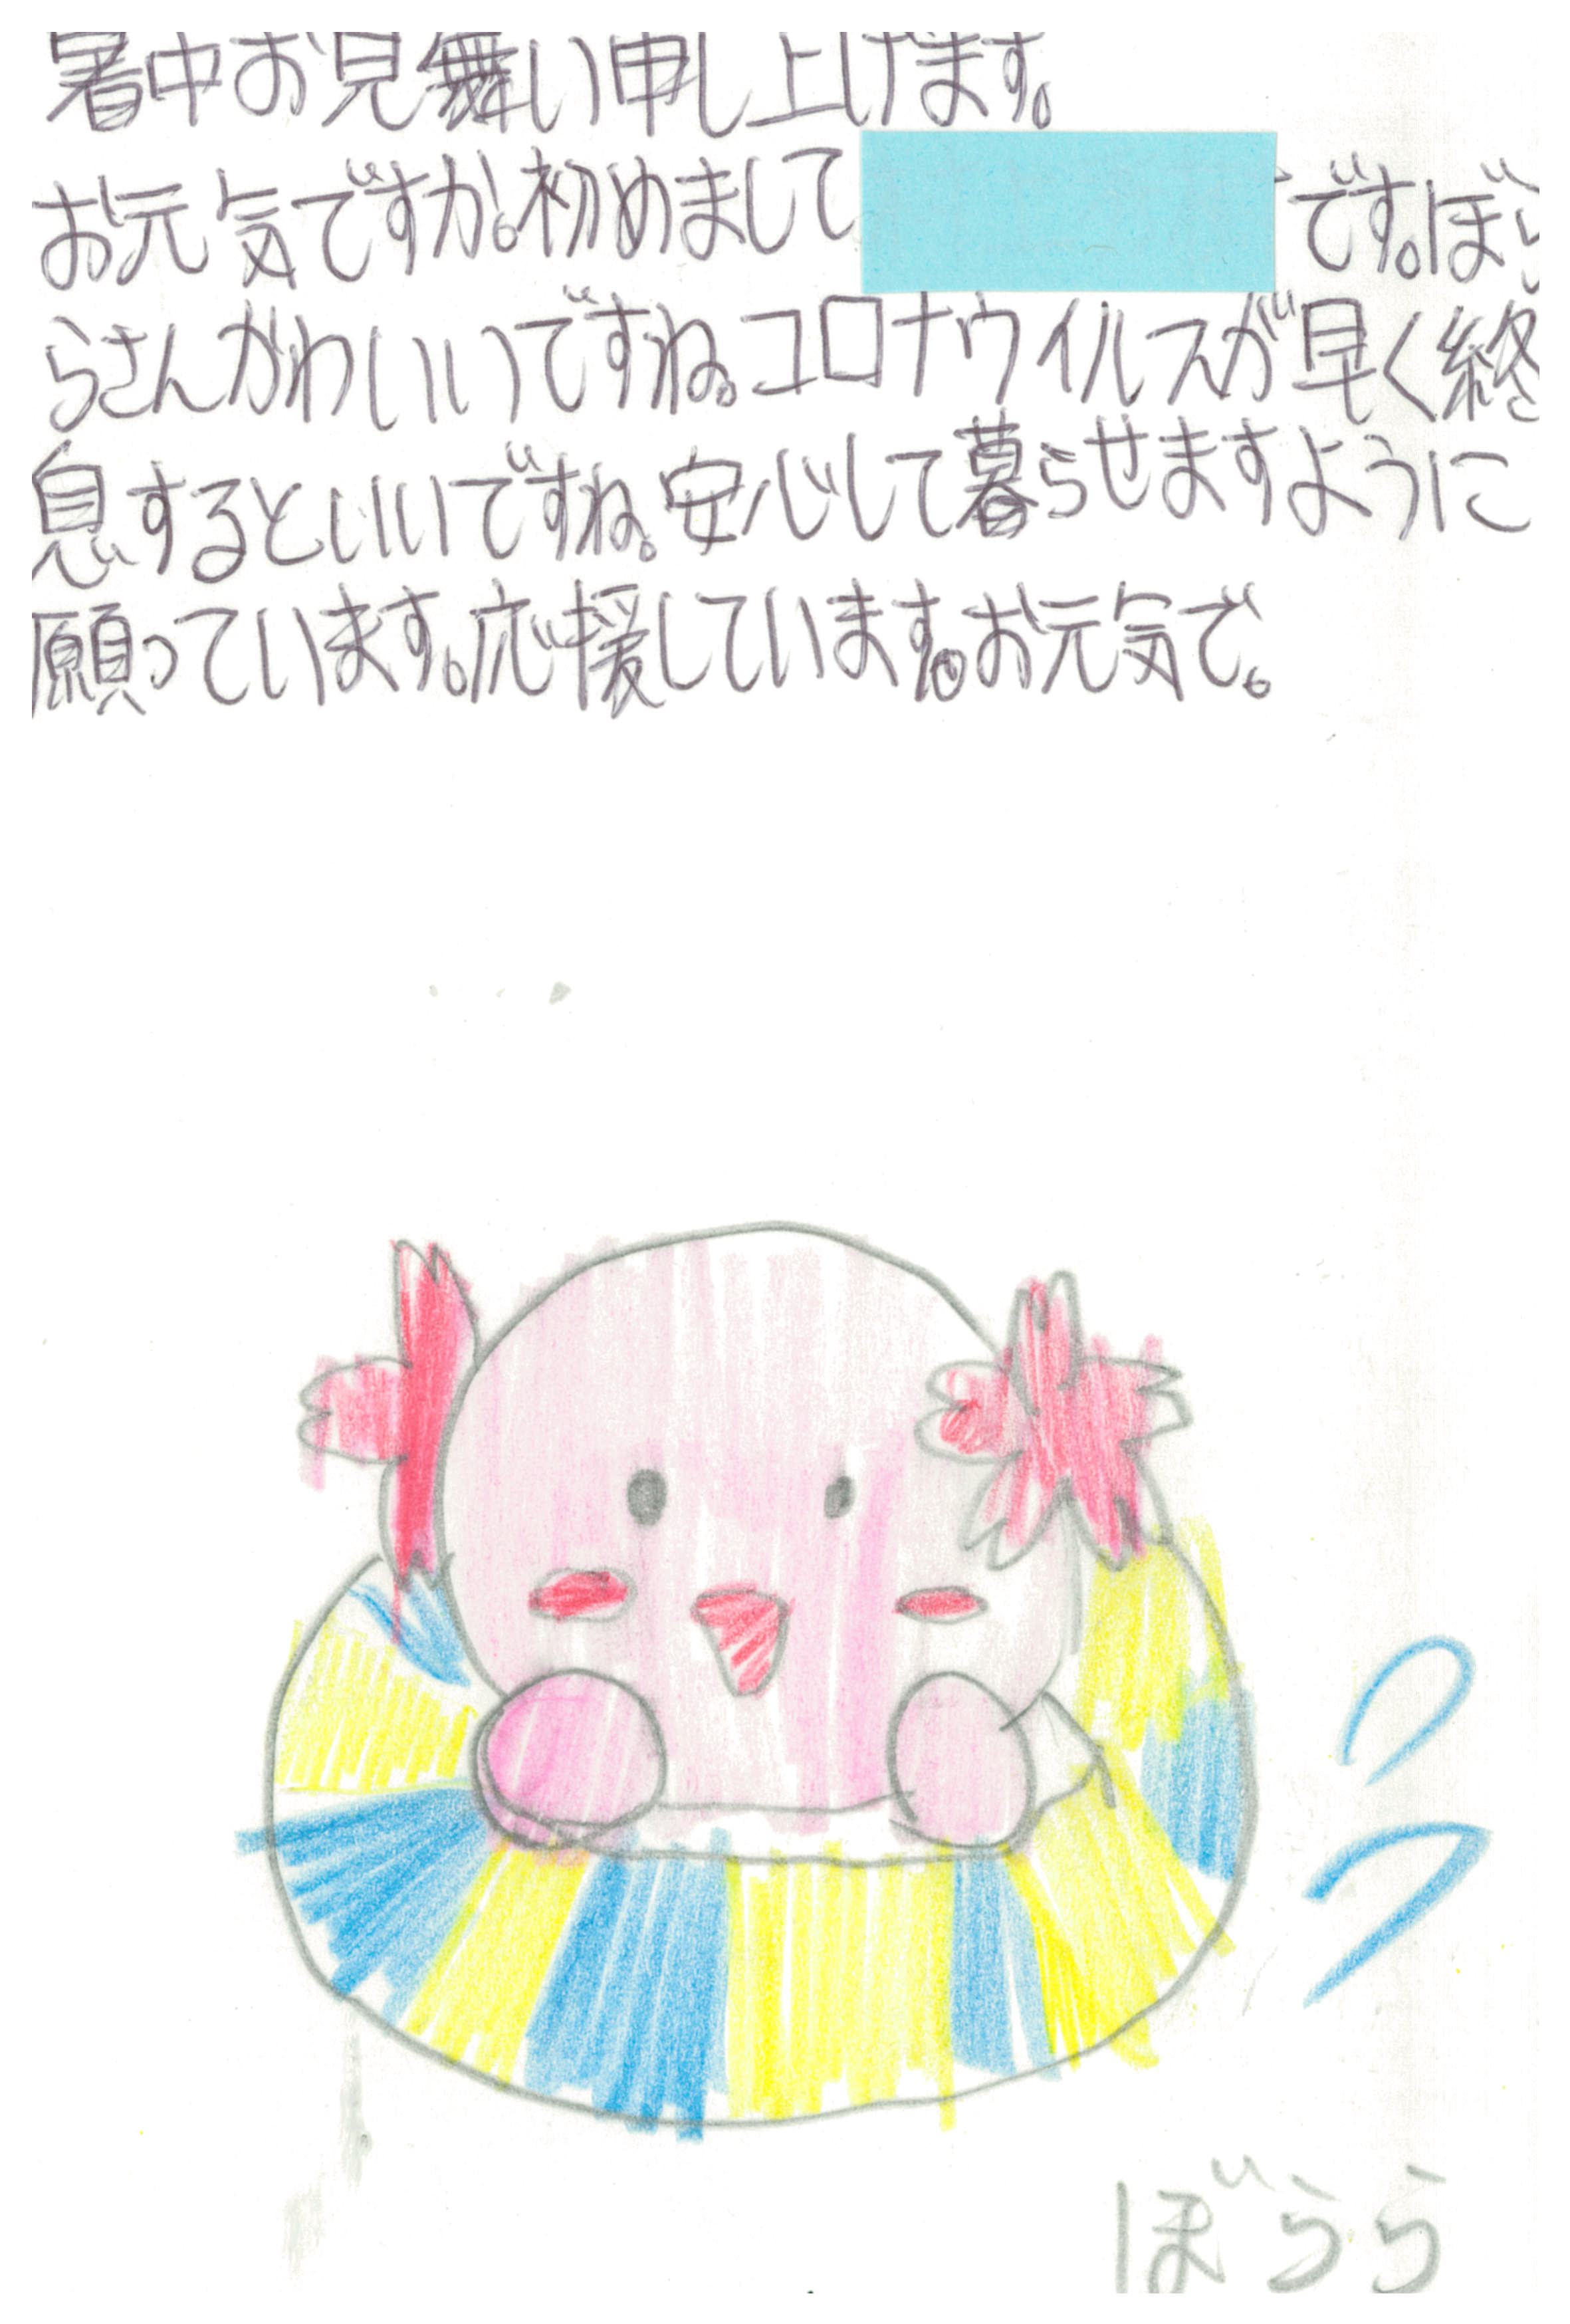 暑中お見舞い申し上げます。
お元気ですか。初めまして です。ぼら
らさんかわいいですね。コロナウイルスが早く終
息するといいですね。安心して暮らせますように
願っています。応援しています。お元気で。
ぼらら